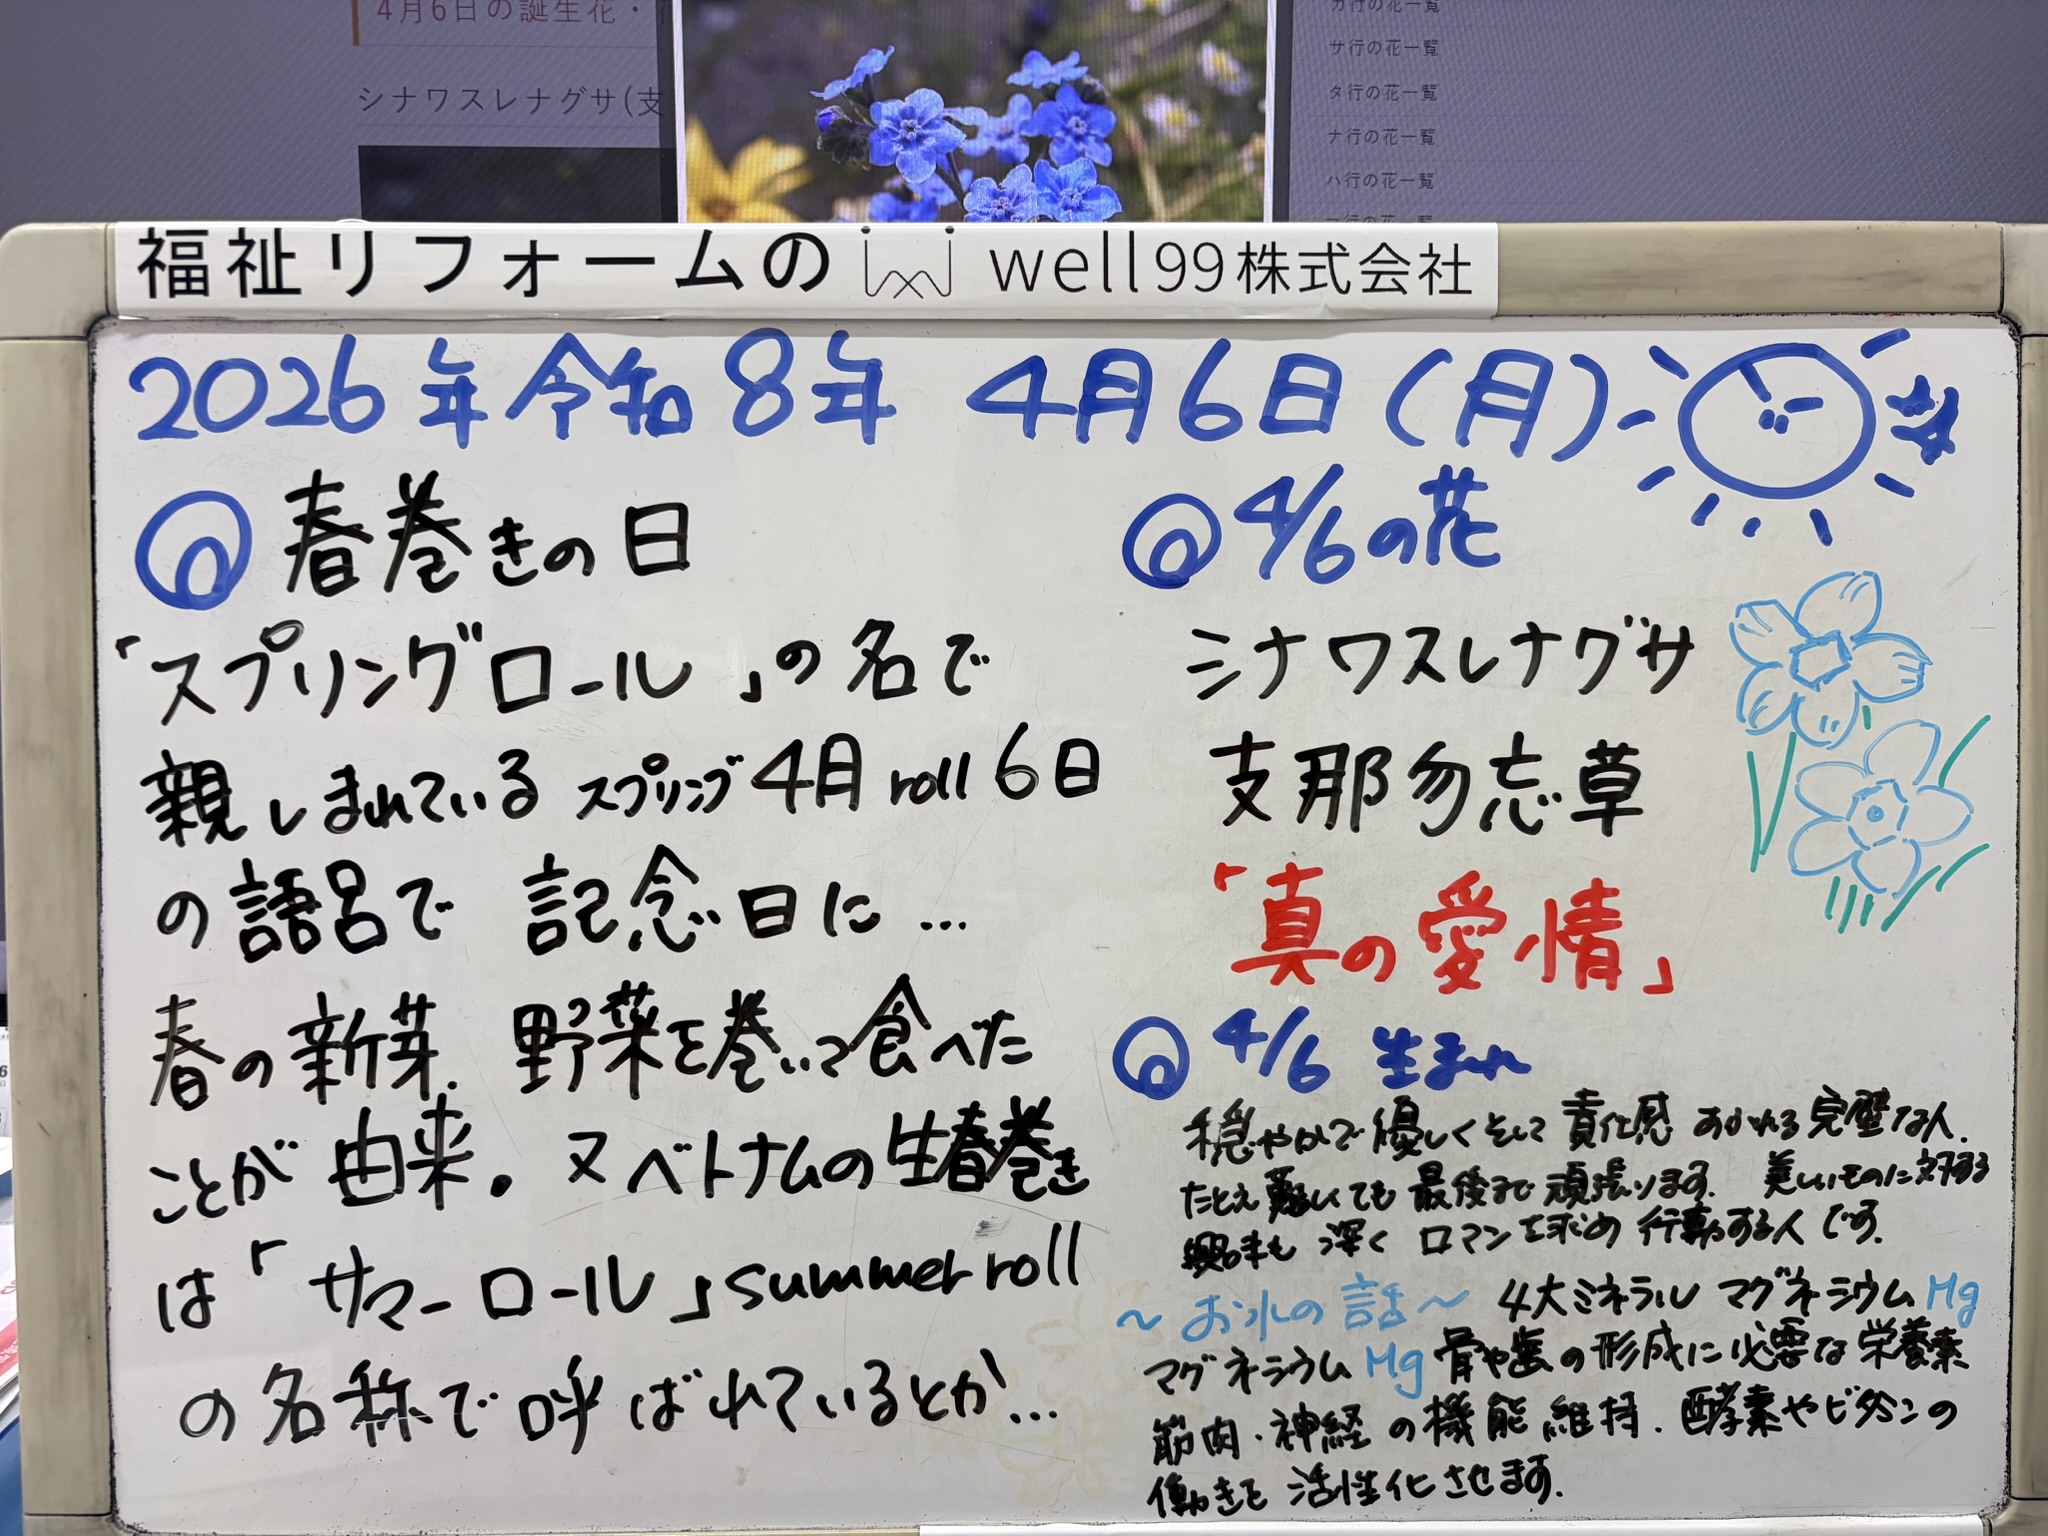 4月6日の誕生花・
シナワスレナグサ(支
カ行の花一覧
サ行の花一覧
タ行の花一覧
ナ行の花一覧
ハ行の花一覧
マ行の花一覧
福祉リフォームの well99株式会社
2026年令和8年 4月6日(月)
春巻きの日
「スプリングロール」の名で
親しまれている スプリング4月 roll 6日
の語呂で 記念日に…
春の新芽、野菜を巻いて食べた
ことが由来。又ベトナムの生春巻き
は「サマーロール」summer roll
の名称で呼ばれているとか…
4/6の花
シナワスレナグサ
支那勿忘草
「真の愛情」
4/6 生まれ
穏やかで優しくそして責任感あふれる完璧な人。
たとえ難しくても最後まで頑張ります。美しいものに対する
興味も深くロマンを求め行動する人です。
〜お水の話〜 4大ミネラル マグネシウムMg
マグネシウムMg 骨や歯の形成に必要な栄養素
筋肉・神経の機能維持。酵素やビタミンの
働きを活性化させます。